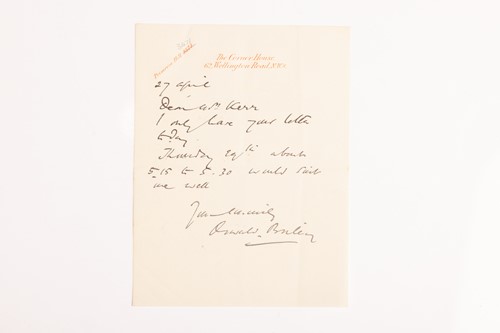 The Corner House
62 Wellington Road, N.W.8.
27 April
Dear Mr Kerr
I only have your letter
to-day.
Thursday 29th about
5.15 to 5.30 would suit
me well
Yours sincerely
Oswald Birley